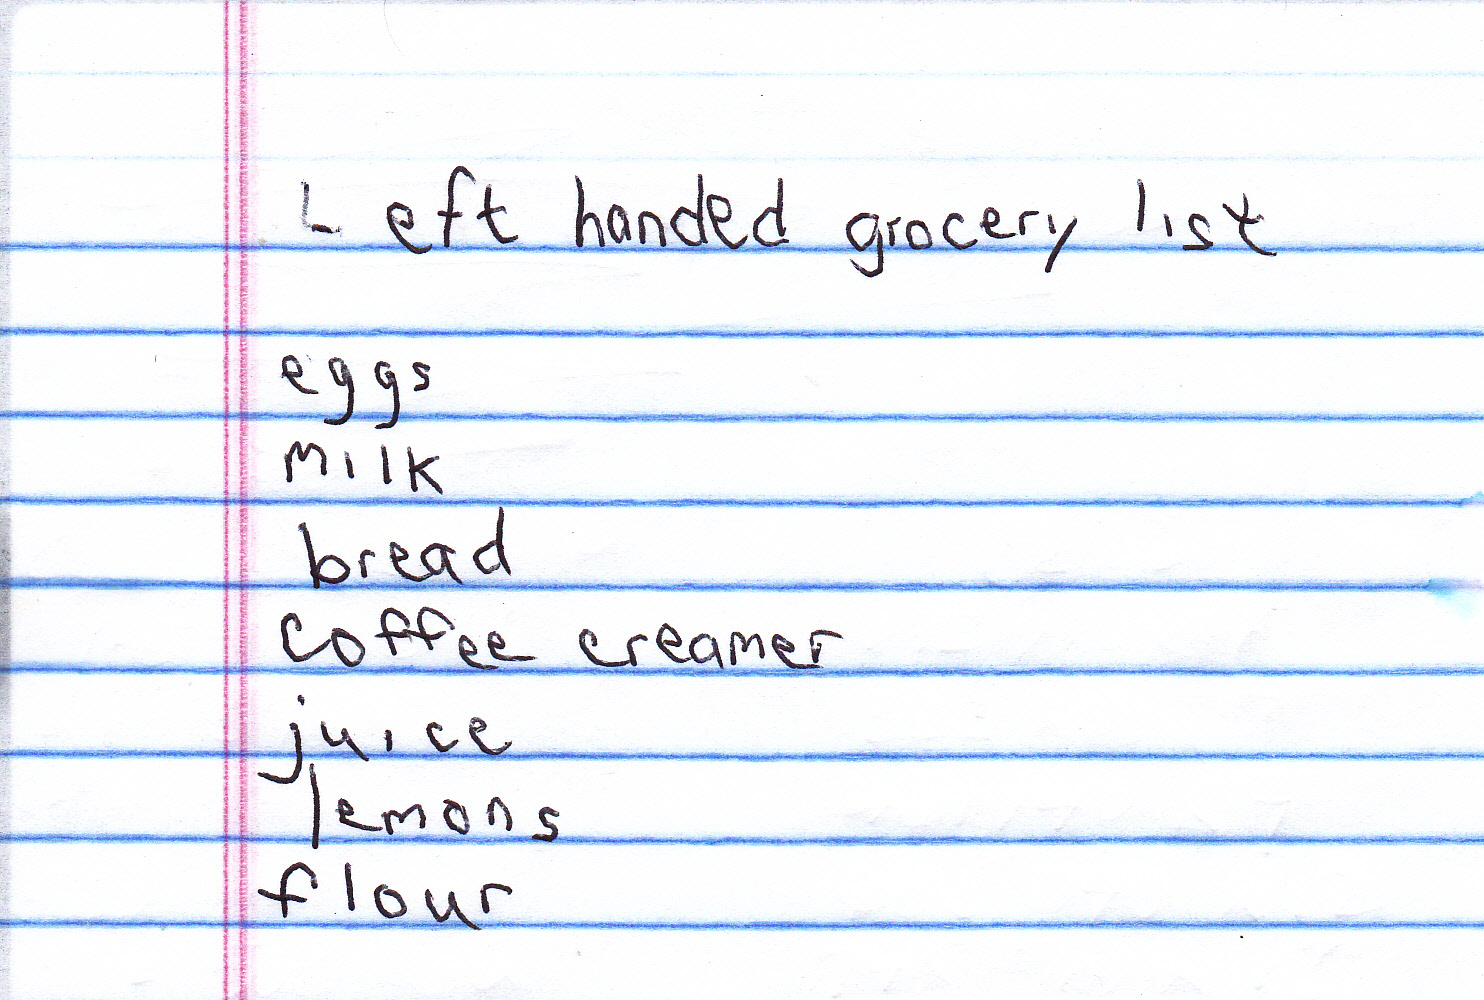 Left handed grocery list
eggs
milk
bread
coffee creamer
juice
lemons
flour